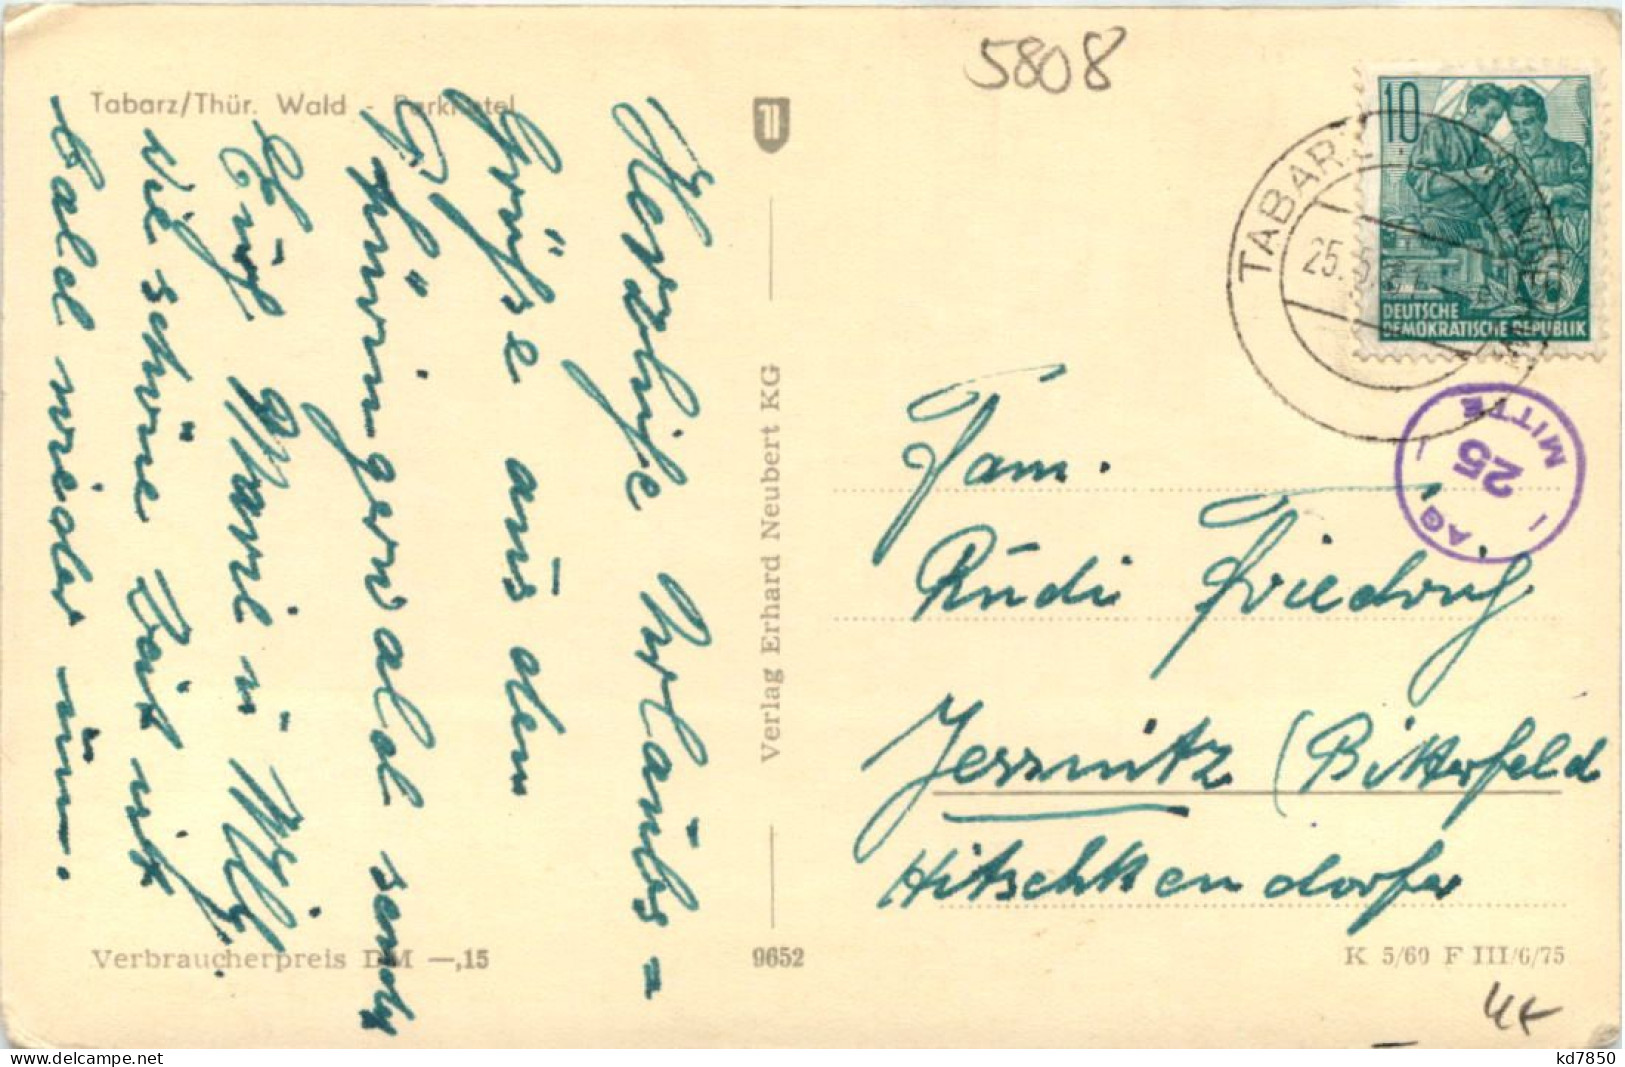 5808
Tabarz/Thür. Wald - Parkhotel
Herzliche Urlaubs=
Grüße aus dem
Thüringerwald sendet
Euch Marie u. Willy.
Die schöne Zeit ist
bald wieder um.
Verbraucherpreis DM —,15
Verlag Erhard Neubert KG
9652
10
DEUTSCHE
DEMOKRATISCHE REPUBLIK
TABARZ
25.
MITTE
25
AG
Fam.
Rudi Friedrich
Jessnitz (Bitterfeld
Hitschkendorfer
K 5/60 F III/6/75
kd7850